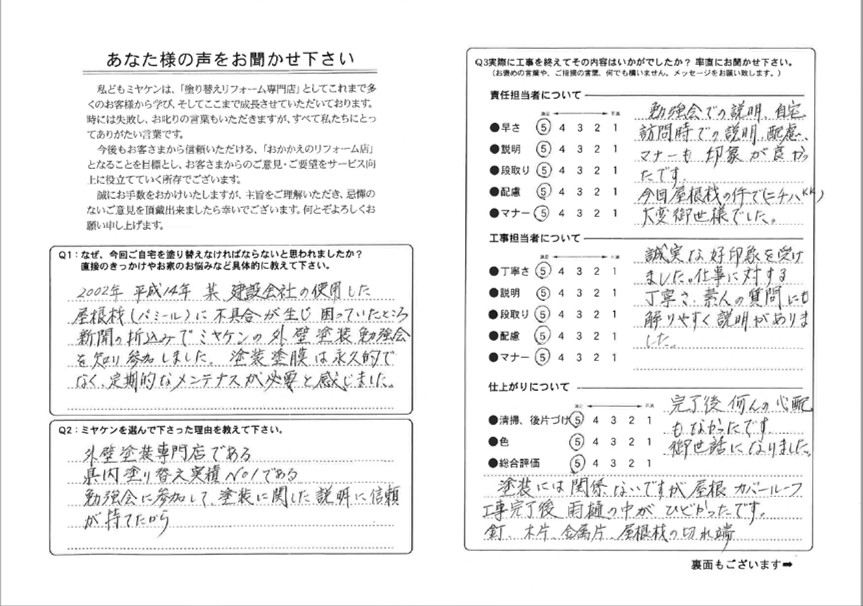 あなた様の声をお聞かせ下さい
私どもミヤケンは、「塗り替えリフォーム専門店」としてこれまで多
くのお客様から学び、そしてここまで成長させていただいております。
時には失敗し、お叱りの言葉もいただきますが、すべて私たちにとっ
てありがたい言葉です。
今後もお客さまから信頼いただける、「おかかえのリフォーム店」
となることを目標とし、お客さまからのご意見・ご要望をサービス向
上に役立てていく所存でございます。
誠にお手数をおかけいたしますが、主旨をご理解いただき、忌憚の
ないご意見を頂戴出来ましたら幸いでございます。何とぞよろしくお
願い申し上げます。
Q1：なぜ、今回ご自宅を塗り替えなければならないと思われましたか？
直接のきっかけやお家のお悩みなど具体的に教えて下さい。
2002年 平成14年 某 建設会社の使用した
屋根材(パミール)に不具合が生じ 困っていたところ
新聞の折込みでミヤケンの外壁塗装勉強会
を知り参加しました。塗装塗膜は永久的で
なく、定期的なメンテナスが必要と感じました。
Q2：ミヤケンを選んで下さった理由を教えて下さい。
外壁塗装専門店である
県内塗り替え実積No1である
勉強会に参加して、塗装に関した説明に信頼
が持てたから
Q3実際に工事を終えてその内容はいかがでしたか？ 率直にお聞かせ下さい。
（お褒めの言葉や、ご指摘の言葉、何でも構いません。メッセージをお願い致します。）
責任担当者について
満足 不満
●早さ 5 4 3 2 1
●説明 5 4 3 2 1
●段取り 5 4 3 2 1
●配慮 5 4 3 2 1
●マナー 5 4 3 2 1
勉強会での説明、自宅
訪問時での説明、配慮、
マナーも 印象が良かっ
たです。
今回屋根材の件で
大変御世様でした。
工事担当者について
●丁寧さ 5 4 3 2 1
●説明 5 4 3 2 1
●段取り 5 4 3 2 1
●配慮 5 4 3 2 1
●マナー 5 4 3 2 1
誠実な好印象を受け
ました。仕事に対する
丁寧さ、素人の質問にも
解りやすく説明がありま
した。
仕上がりについて
満足 不満
●清掃、後片づけ 5 4 3 2 1
●色 5 4 3 2 1
●総合評価 5 4 3 2 1
完了後 何んの心配
もなかったです
御世話になりました。
塗装には関係ないですが 屋根カバールーフ
工事完了後 雨樋の中が ひどかったです。
釘、木片、金属片、屋根材の切れ端
裏面もございます➡